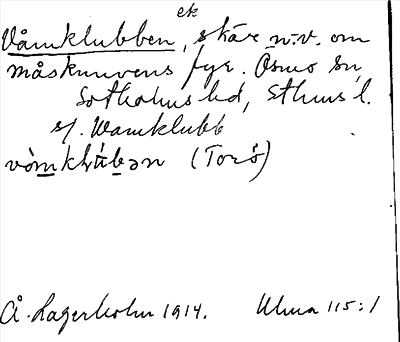 ek
Våmklubben, skär n.v. om
måsknuvens fyr. Ösmo sn,
Sotholms hd, Sthms l.
s/. Wamklubb
(Torö)
Å. Lagerholm 1914. Ulma 115:1